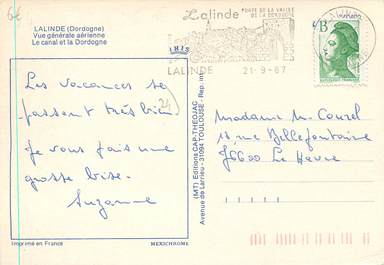 6€
LALINDE (Dordogne)
Vue générale aérienne
Le canal et la Dordogne
Lalinde
PORTE DE LA VALLÉE
DE LA DORDOGNE
LALINDE
21-9-87
B
Les vacances se
passent très bien
Je vous fais une
grosse bise.
Suzanne
24
(MT) Editions CAP-THEOJAC
Avenue de Larrieu - 31094 TOULOUSE - Rep. int.
Madame M. Courel
rue Bellefontaine
76600 Le Havre
Imprimé en France
MEXICHROME